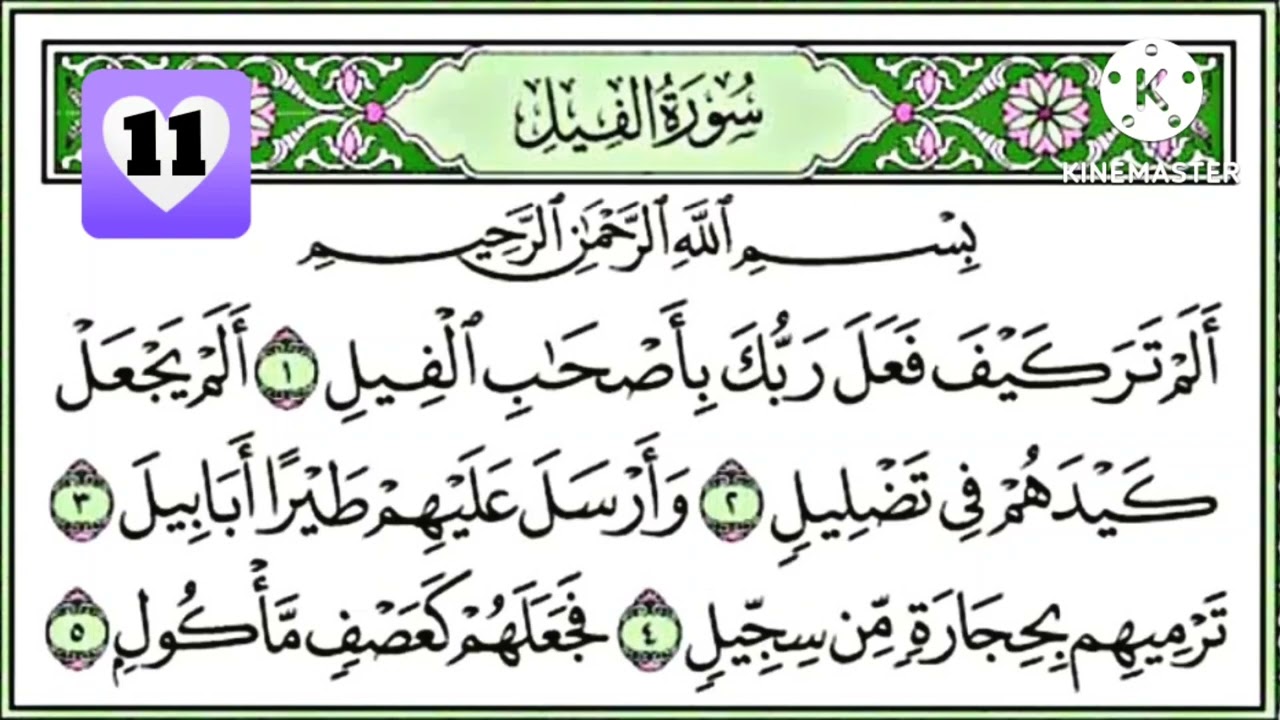 سُورَةُ الفِيلِ
11
K
KINEMASTER
بِسْمِ ٱللَّهِ ٱلرَّحْمَٰنِ ٱلرَّحِيمِ
أَلَمْ تَرَ كَيْفَ فَعَلَ رَبُّكَ بِأَصْحَٰبِ ٱلْفِيلِ ١ أَلَمْ يَجْعَلْ
كَيْدَهُمْ فِي تَضْلِيلٍ ٢ وَأَرْسَلَ عَلَيْهِمْ طَيْرًا أَبَابِيلَ ٣
تَرْمِيهِم بِحِجَارَةٍ مِّن سِجِّيلٍ ٤ فَجَعَلَهُمْ كَعَصْفٍ مَّأْكُولٍ ٥